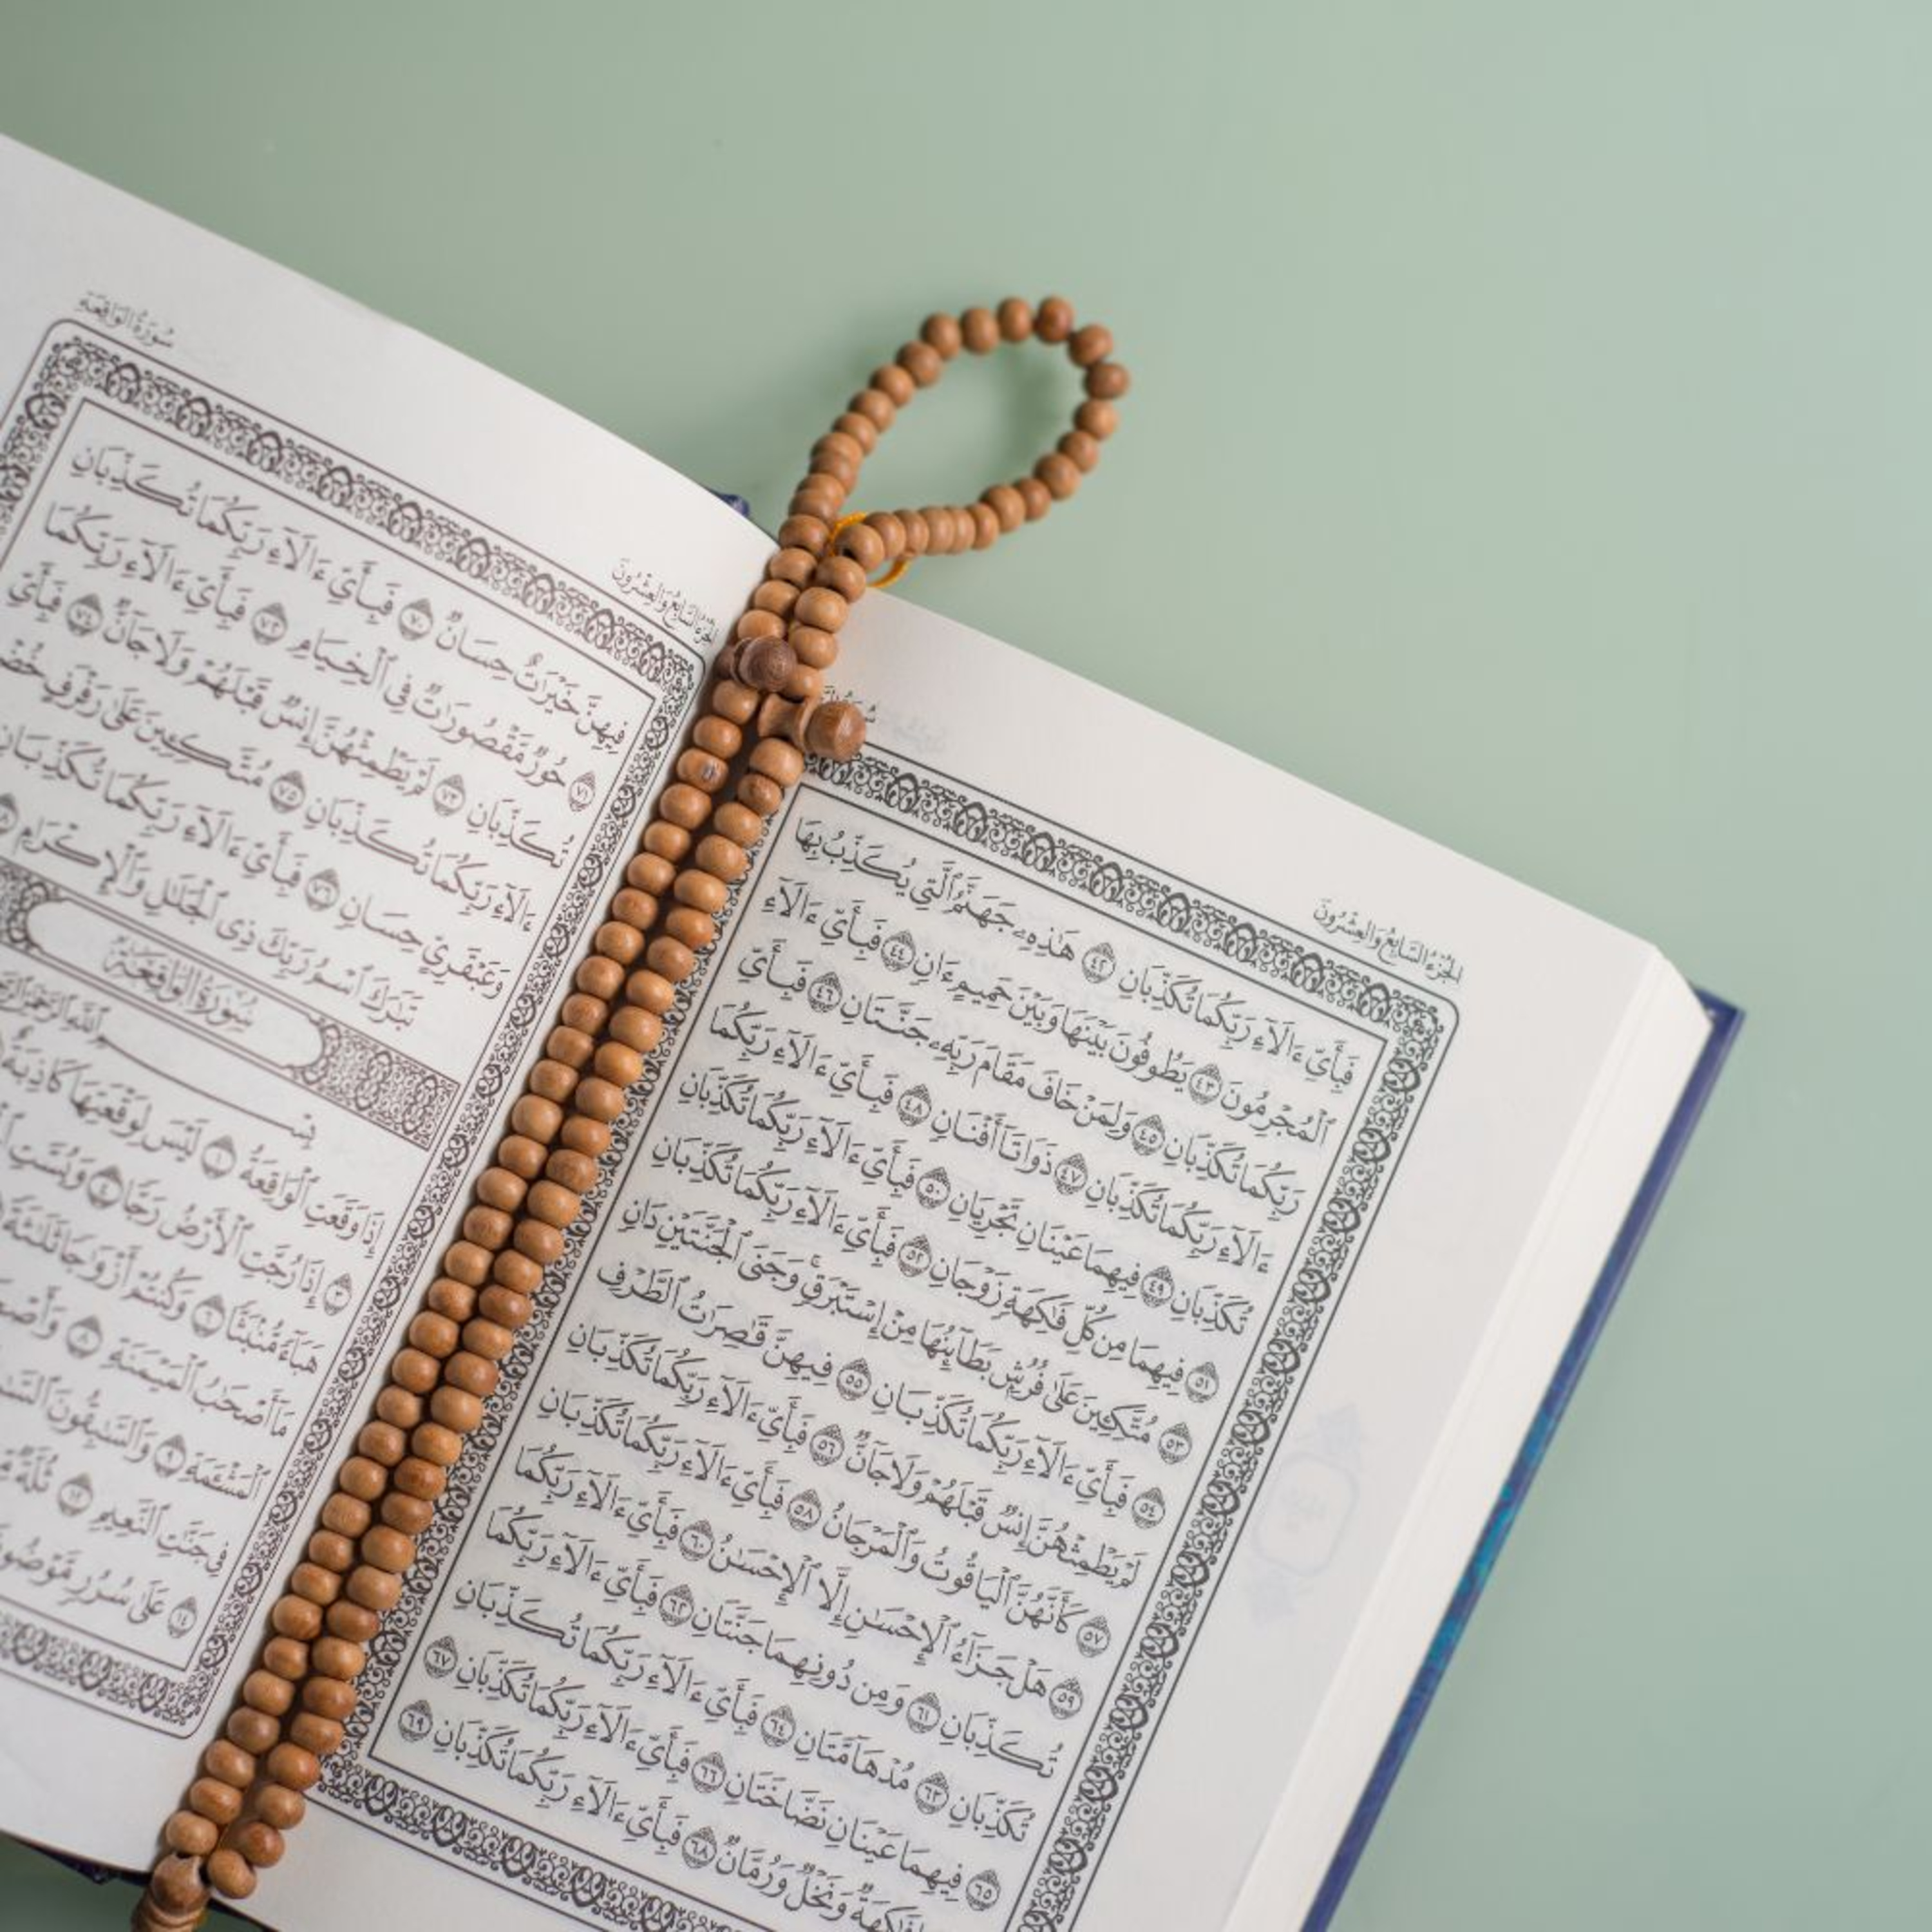 الجزء السابع والعشرون
فَبِأَيِّ ءَالَآءِ رَبِّكُمَا تُكَذِّبَانِ ٤٢ هَٰذِهِۦ جَهَنَّمُ ٱلَّتِي يُكَذِّبُ بِهَا
ٱلْمُجْرِمُونَ ٤٣ يَطُوفُونَ بَيْنَهَا وَبَيْنَ حَمِيمٍ ءَانٍ ٤٤ فَبِأَيِّ ءَالَآءِ
رَبِّكُمَا تُكَذِّبَانِ ٤٥ وَلِمَنْ خَافَ مَقَامَ رَبِّهِۦ جَنَّتَانِ ٤٦ فَبِأَيِّ
ءَالَآءِ رَبِّكُمَا تُكَذِّبَانِ ٤٧ ذَوَاتَآ أَفْنَانٍ ٤٨ فَبِأَيِّ ءَالَآءِ رَبِّكُمَا
تُكَذِّبَانِ ٤٩ فِيهِمَا عَيْنَانِ تَجْرِيَانِ ٥٠ فَبِأَيِّ ءَالَآءِ رَبِّكُمَا تُكَذِّبَانِ
٥١ فِيهِمَا مِن كُلِّ فَٰكِهَةٍ زَوْجَانِ ٥٢ فَبِأَيِّ ءَالَآءِ رَبِّكُمَا تُكَذِّبَانِ
٥٣ مُتَّكِـِٔينَ عَلَىٰ فُرُشٍۭ بَطَآئِنُهَا مِنْ إِسْتَبْرَقٍ ۚ وَجَنَى ٱلْجَنَّتَيْنِ دَانٍ
٥٤ فَبِأَيِّ ءَالَآءِ رَبِّكُمَا تُكَذِّبَانِ ٥٥ فِيهِنَّ قَٰصِرَٰتُ ٱلطَّرْفِ
لَمْ يَطْمِثْهُنَّ إِنسٌ قَبْلَهُمْ وَلَا جَآنٌّ ٥٦ فَبِأَيِّ ءَالَآءِ رَبِّكُمَا تُكَذِّبَانِ
٥٧ كَأَنَّهُنَّ ٱلْيَاقُوتُ وَٱلْمَرْجَانُ ٥٨ فَبِأَيِّ ءَالَآءِ رَبِّكُمَا تُكَذِّبَانِ
٥٩ هَلْ جَزَآءُ ٱلْإِحْسَٰنِ إِلَّا ٱلْإِحْسَٰنُ ٦٠ فَبِأَيِّ ءَالَآءِ رَبِّكُمَا
تُكَذِّبَانِ ٦١ وَمِن دُونِهِمَا جَنَّتَانِ ٦٢ فَبِأَيِّ ءَالَآءِ رَبِّكُمَا
تُكَذِّبَانِ ٦٣ مُدْهَآمَّتَانِ ٦٤ فَبِأَيِّ ءَالَآءِ رَبِّكُمَا تُكَذِّبَانِ
٦٥ فِيهِمَا عَيْنَانِ نَضَّاخَتَانِ ٦٦ فَبِأَيِّ ءَالَآءِ رَبِّكُمَا تُكَذِّبَانِ ٦٧
فَٰكِهَةٌ وَنَخْلٌ وَرُمَّانٌ ٦٨ فَبِأَيِّ ءَالَآءِ رَبِّكُمَا تُكَذِّبَانِ ٦٩
الجزء السابع والعشرون
سُورَةُ الوَاقِعَةِ
فِيهِنَّ خَيْرَٰتٌ حِسَانٌ ٧٠ فَبِأَيِّ ءَالَآءِ رَبِّكُمَا تُكَذِّبَانِ
٧١ حُورٌ مَّقْصُورَٰتٌ فِي ٱلْخِيَامِ ٧٢ فَبِأَيِّ ءَالَآءِ رَبِّكُمَا
تُكَذِّبَانِ ٧٣ لَمْ يَطْمِثْهُنَّ إِنسٌ قَبْلَهُمْ وَلَا جَآنٌّ ٧٤ فَبِأَيِّ
ءَالَآءِ رَبِّكُمَا تُكَذِّبَانِ ٧٥ مُتَّكِـِٔينَ عَلَىٰ رَفْرَفٍ
وَعَبْقَرِيٍّ حِسَانٍ ٧٦ فَبِأَيِّ ءَالَآءِ رَبِّكُمَا تُكَذِّبَانِ
تَبَٰرَكَ ٱسْمُ رَبِّكَ ذِي ٱلْجَلَٰلِ وَٱلْإِكْرَامِ
سُورَةُ الوَاقِعَةِ
بِسْمِ ٱللَّهِ ٱلرَّحْمَٰنِ
إِذَا وَقَعَتِ ٱلْوَاقِعَةُ ١ لَيْسَ لِوَقْعَتِهَا كَاذِبَةٌ
٣ إِذَا رُجَّتِ ٱلْأَرْضُ رَجًّا ٤ وَبُسَّتِ
هَبَآءً مُّنۢبَثًّا ٦ وَكُنتُمْ أَزْوَٰجًا ثَلَٰثَةً
مَآ أَصْحَٰبُ ٱلْمَيْمَنَةِ ٨
ٱلْمَشْـَٔمَةِ ٩ وَٱلسَّٰبِقُونَ
فِي جَنَّٰتِ ٱلنَّعِيمِ ١٢ ثُلَّةٌ
١٤ عَلَىٰ سُرُرٍ